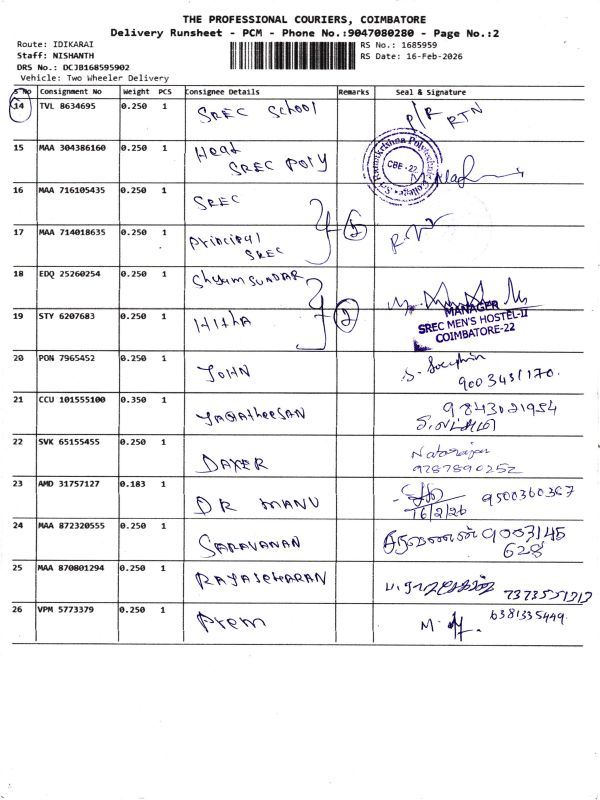 THE PROFESSIONAL COURIERS, COIMBATORE
Delivery Runsheet - PCM - Phone No.:9047080280 - Page No.:2
Route: IDIKARAI
RS No.: 1685959
Staff: NISHANTH
RS Date: 16-Feb-2026
DRS No.: DCJB168595902
Vehicle: Two Wheeler Delivery
S No Consignment No Weight PCS Consignee Details Remarks Seal & Signature
14 TVL 8634695 0.250 1 SREC School P/R RTN
15 MAA 304386160 0.250 1 Heat SREC Poly
Sri Ramakrishna Polytechnic College
CBE-22
16 MAA 716105435 0.250 1 SREC
17 MAA 714018635 0.250 1 Principal SREC
18 EDQ 25260254 0.250 1 Shyam SUNDAR
19 STY 6207683 0.250 1 Hitha 2
MANAGER
SREC MEN'S HOSTEL-II
COIMBATORE-22
20 PON 7965452 0.250 1 JOHN
21 CCU 101555100 0.350 1 Jagatheesan 9843021954
22 SVK 65155455 0.250 1 DAXER Natarajan
9787890252
23 AMD 31757127 0.183 1 DR MANU 9500360367
16/2/26
24 MAA 872320555 0.250 1 SARAVANAN சரவணன் 9003145
628
25 MAA 870801294 0.250 1 RAJASEKARAN
26 VPM 5773379 0.250 1 Prem M. 6381335449.